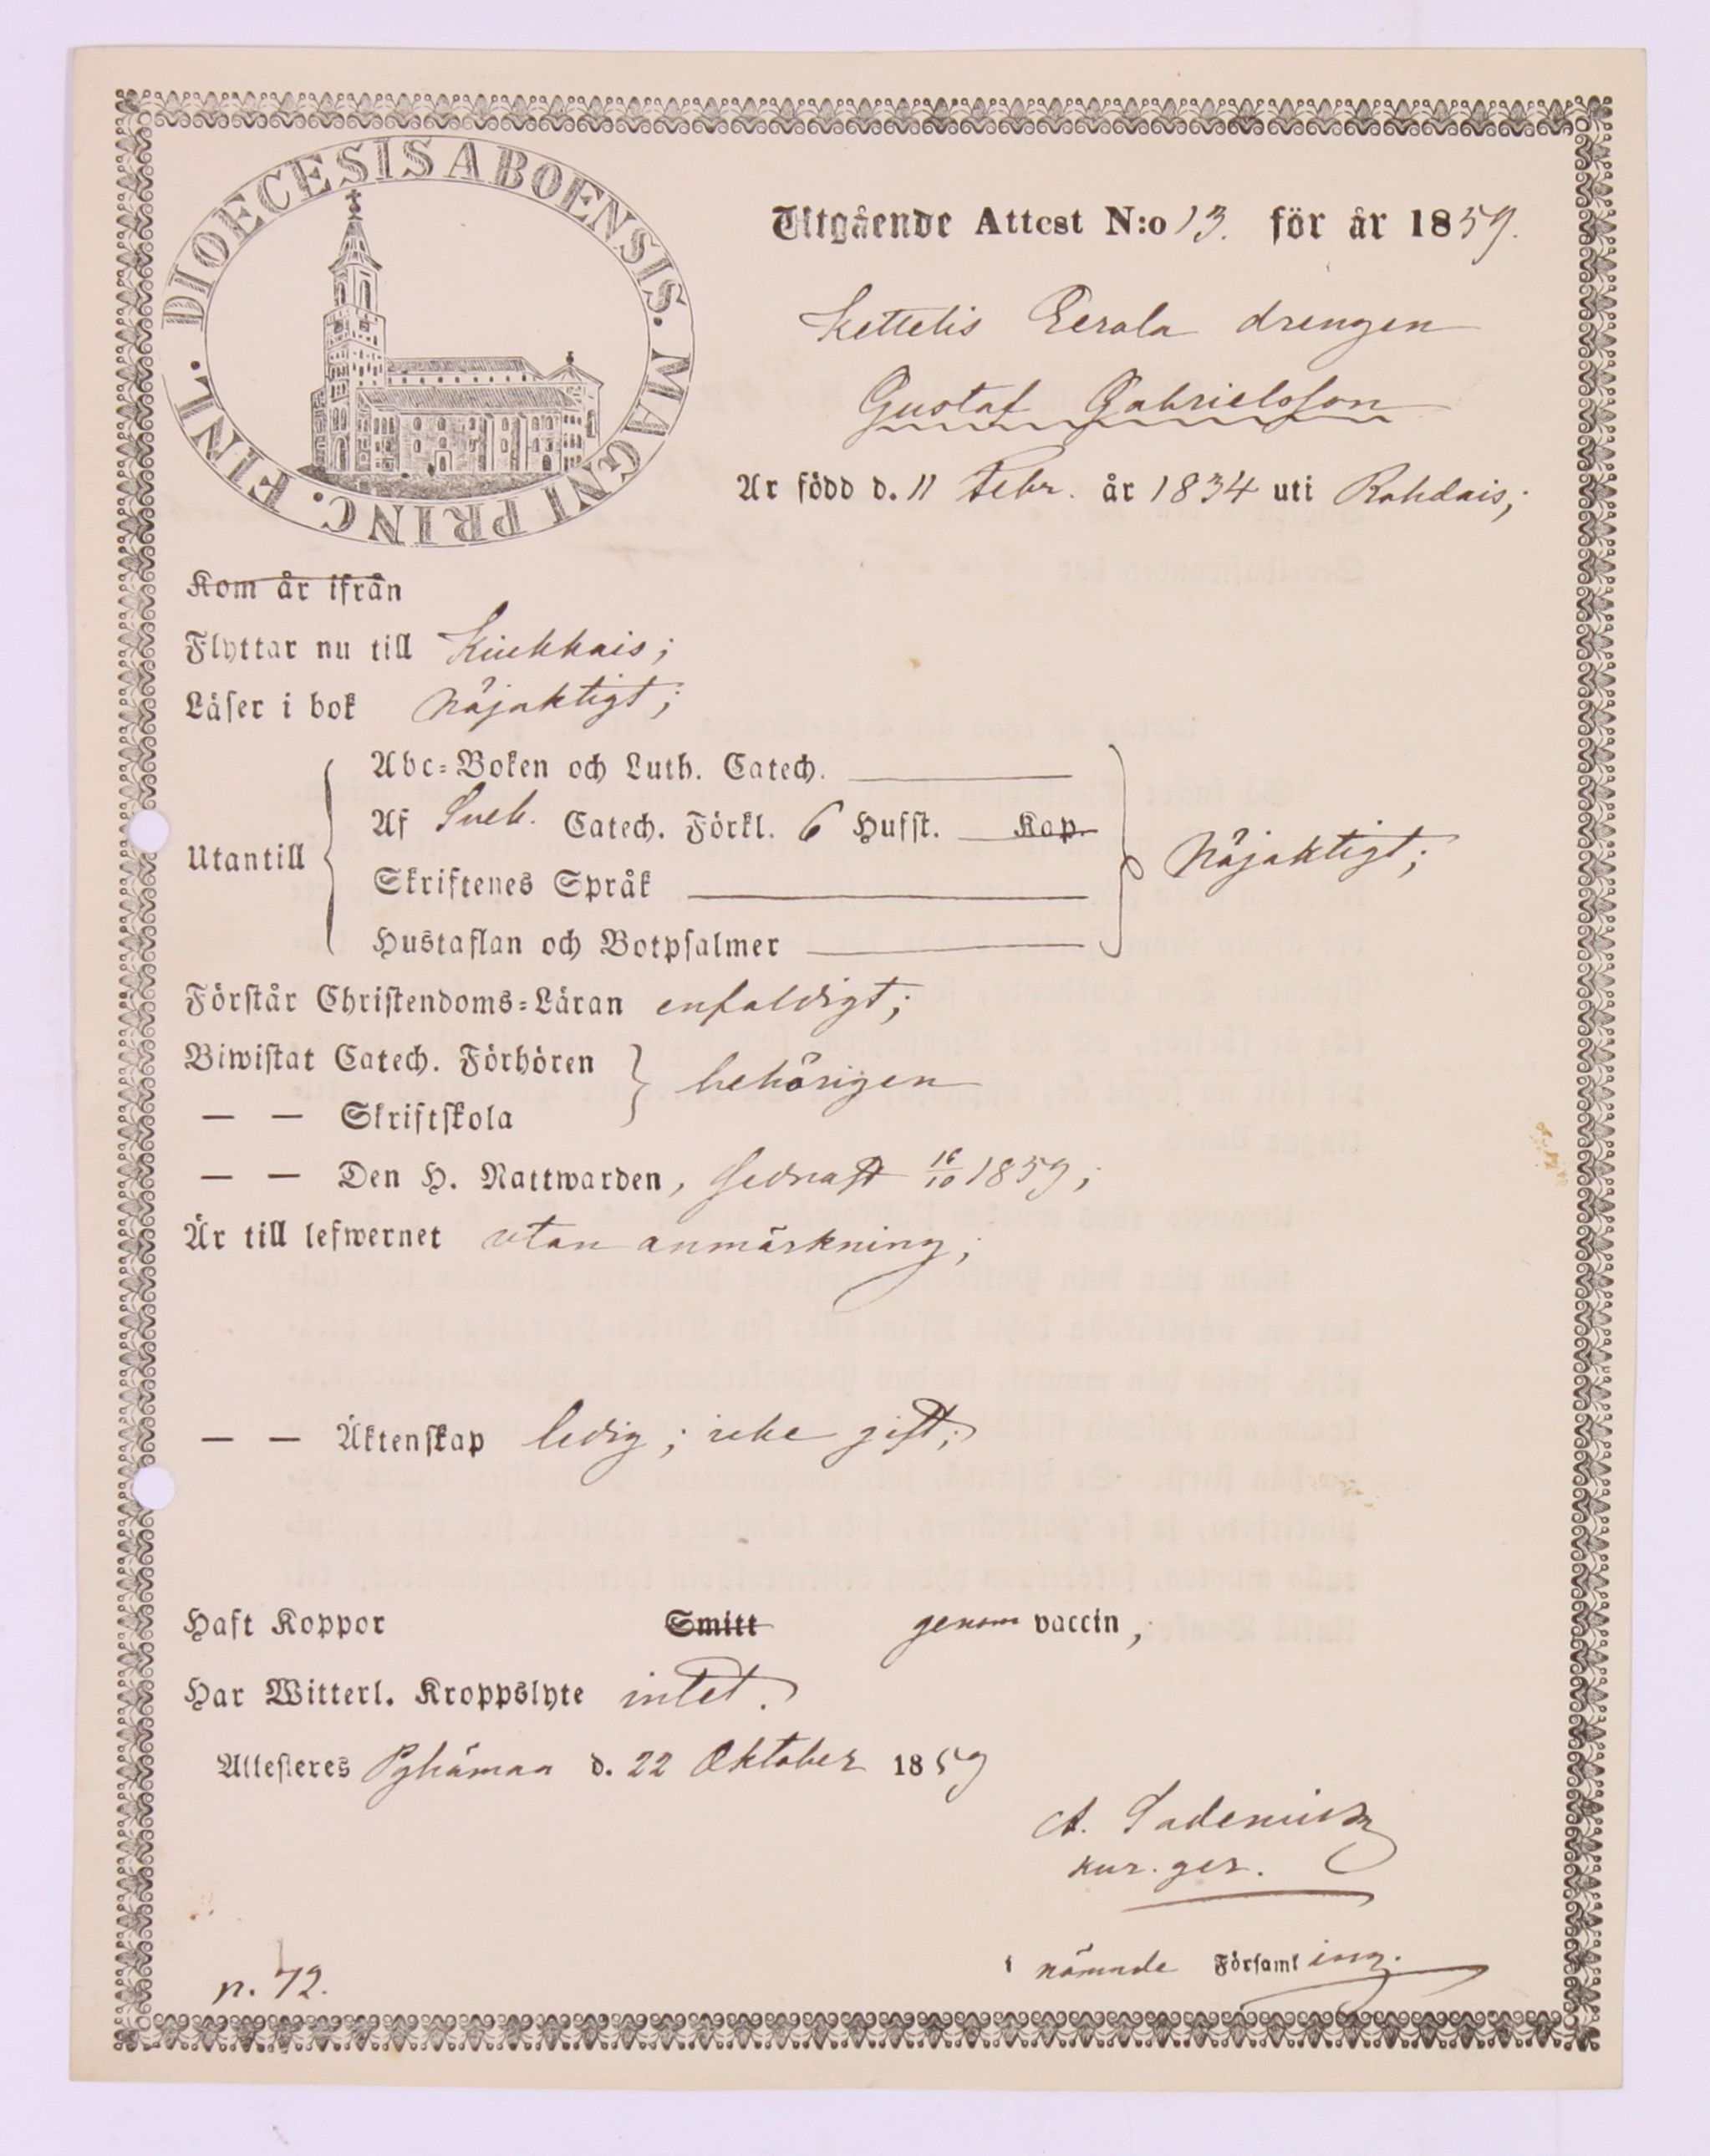 DIOECESIS ABOENSIS. MAGNI PRINC. FINL.
Utgående Attest N:o 13. för år 1859.
Kettelis Eerola drengen
Gustaf Gabrielsson
Är född d. 11 Febr. år 1834 uti Rohdais;
Kom år ifrån
Flyttar nu till Kiukkais;
Läser i bok nöjaktigt;
Utantill
Abc-Boken och Luth. Catech.
Af Sveb. Catech. Förkl. 6 Hufst. Kap.
Skriftenes Språk
Hustaflan och Botpsalmer
nöjaktigt;
Förstår Christendoms-Läran enfaldigt;
Biwistat Catech. Förhören
— — Skriftskola
behörigen
— — Den H. Nattwarden, sednast 16/10 1859;
Är till lefwernet utan anmärkning;
— — Äktenskap ledig; icke gift;
Haft Koppor Smitt genom vaccin,
Har Witterl. Kroppslyte intet.
Attesteres Pyhämaa d. 22 Oktober 1859
A.
kur. ger.
i nämnde Församling.
p. 72.